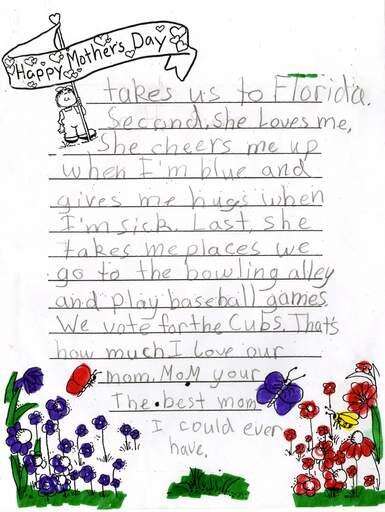 Happy Mother's Day
takes us to Florida.
Second, she Loves me,
She cheers me up
when I'm blue and
gives me hugs when
I'm sick. Last, she
takes me places we
go to the bowling alley
and play baseball games.
We vote for the Cubs. That's
how much I love our
mom. MoM your
The best mom
I could ever
have.